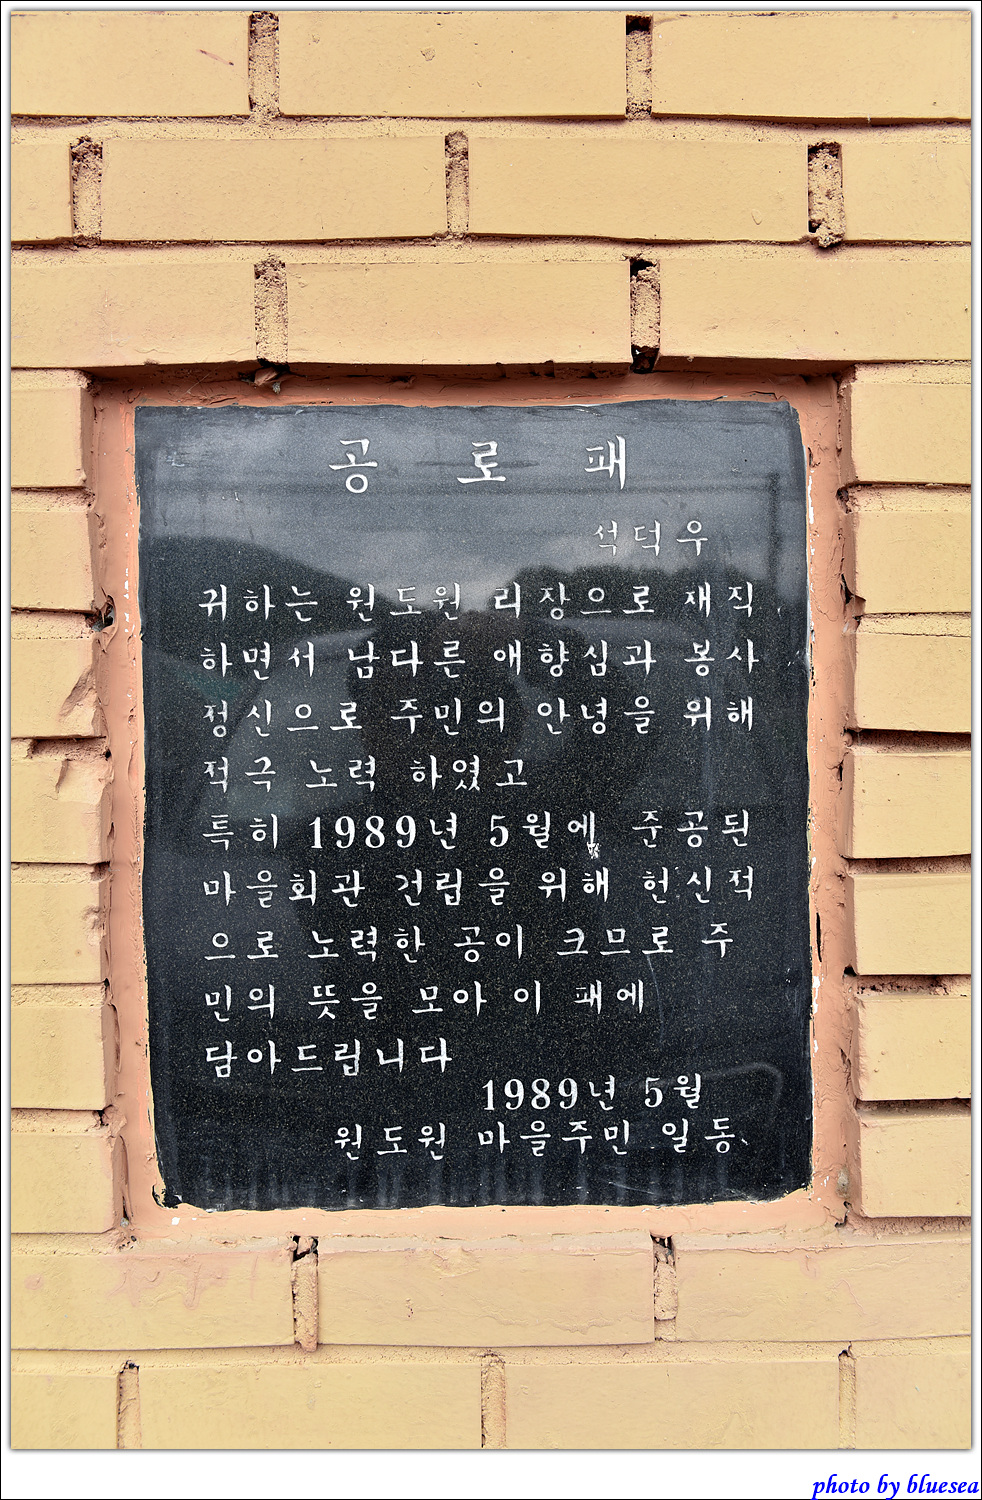 공 로 패
석덕우
귀하는 원도원 리장으로 재직
하면서 남다른 애향심과 봉사
정신으로 주민의 안녕을 위해
적극 노력 하였고
특히 1989년 5월에 준공된
마을회관 건립을 위해 헌신적
으로 노력한 공이 크므로 주
민의 뜻을 모아 이 패에
담아드립니다
1989년 5월
원도원 마을주민 일동
photo by bluesea